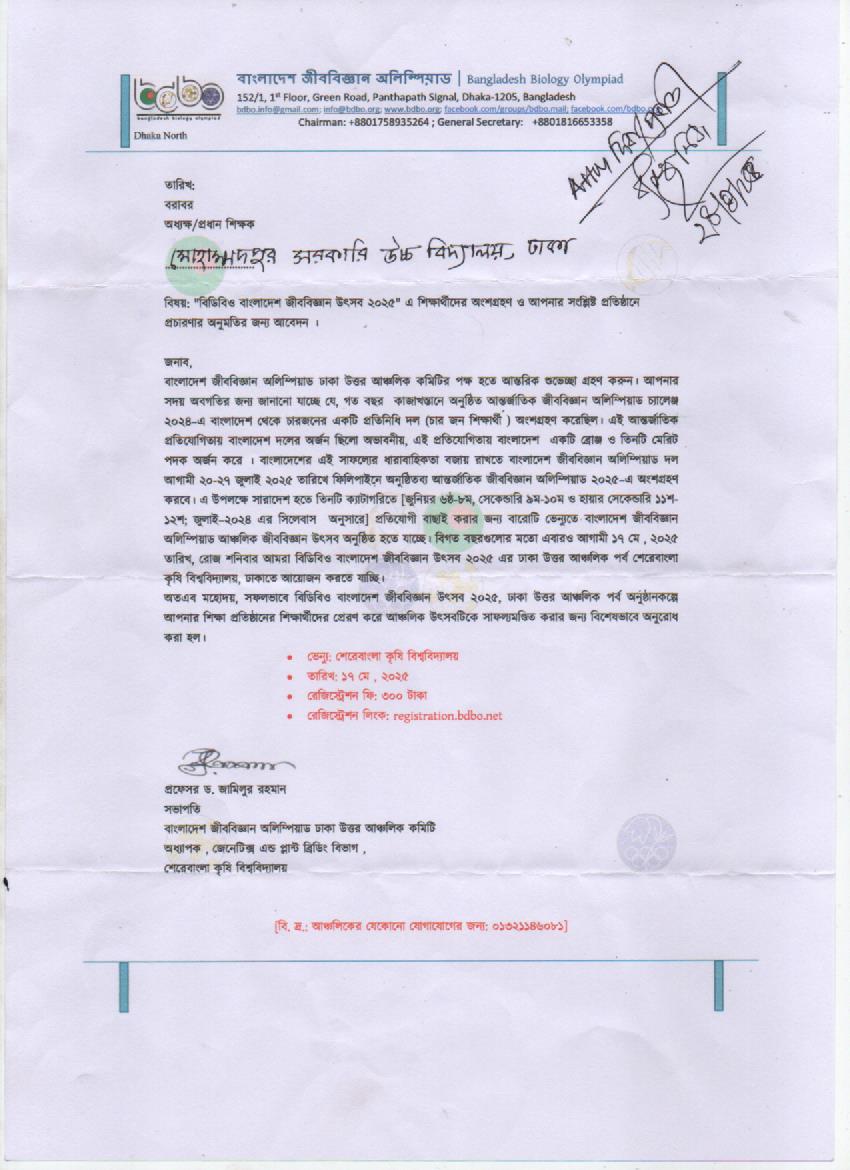 বাংলাদেশ জীববিজ্ঞান অলিম্পিয়াড | Bangladesh Biology Olympiad
152/1, 1st Floor, Green Road, Panthapath Signal, Dhaka-1205, Bangladesh
bdbo.info@gmail.com; info@bdbo.org; www.bdbo.org; facebook.com/groups/bdbo.mail; facebook.com/bdbo
Chairman: +8801758935264 ; General Secretary: +8801816653358
bdbo
bangladesh biology olympiad
Dhaka North
তারিখ:
বরাবর
অধ্যক্ষ/প্রধান শিক্ষক
মোহাম্মদপুর সরকারি উচ্চ বিদ্যালয়, ঢাকা
বিষয়: "বিডিবিও বাংলাদেশ জীববিজ্ঞান উৎসব ২০২৫" এ শিক্ষার্থীদের অংশগ্রহণ ও আপনার সংশ্লিষ্ট প্রতিষ্ঠানে
প্রচারণার অনুমতির জন্য আবেদন ।
জনাব,
বাংলাদেশ জীববিজ্ঞান অলিম্পিয়াড ঢাকা উত্তর আঞ্চলিক কমিটির পক্ষ হতে আন্তরিক শুভেচ্ছা গ্রহণ করুন। আপনার
সদয় অবগতির জন্য জানানো যাচ্ছে যে, গত বছর কাজাখস্তানে অনুষ্ঠিত আন্তর্জাতিক জীববিজ্ঞান অলিম্পিয়াড চ্যালেঞ্জ
২০২৪-এ বাংলাদেশ থেকে চারজনের একটি প্রতিনিধি দল (চার জন শিক্ষার্থী ) অংশগ্রহণ করেছিল। এই আন্তর্জাতিক
প্রতিযোগিতায় বাংলাদেশ দলের অর্জন ছিলো অভাবনীয়, এই প্রতিযোগিতায় বাংলাদেশ একটি ব্রোঞ্জ ও তিনটি মেরিট
পদক অর্জন করে । বাংলাদেশের এই সাফল্যের ধারাবাহিকতা বজায় রাখতে বাংলাদেশ জীববিজ্ঞান অলিম্পিয়াড দল
আগামী ২০-২৭ জুলাই ২০২৫ তারিখে ফিলিপাইনে অনুষ্ঠিতব্য আন্তর্জাতিক জীববিজ্ঞান অলিম্পিয়াড ২০২৫-এ অংশগ্রহণ
করবে। এ উপলক্ষে সারাদেশ হতে তিনটি ক্যাটাগরিতে [জুনিয়র ৬ষ্ঠ-৮ম, সেকেন্ডারি ৯ম-১০ম ও হায়ার সেকেন্ডারি ১১শ-
১২শ; জুলাই-২০২৪ এর সিলেবাস অনুসারে] প্রতিযোগী বাছাই করার জন্য বারোটি ভেন্যুতে বাংলাদেশ জীববিজ্ঞান
অলিম্পিয়াড আঞ্চলিক জীববিজ্ঞান উৎসব অনুষ্ঠিত হতে যাচ্ছে। বিগত বছরগুলোর মতো এবারও আগামী ১৭ মে , ২০২৫
তারিখ, রোজ শনিবার আমরা বিডিবিও বাংলাদেশ জীববিজ্ঞান উৎসব ২০২৫ এর ঢাকা উত্তর আঞ্চলিক পর্ব শেরেবাংলা
কৃষি বিশ্ববিদ্যালয়, ঢাকাতে আয়োজন করতে যাচ্ছি।
অতএব মহোদয়, সফলভাবে বিডিবিও বাংলাদেশ জীববিজ্ঞান উৎসব ২০২৫, ঢাকা উত্তর আঞ্চলিক পর্ব অনুষ্ঠানকল্পে
আপনার শিক্ষা প্রতিষ্ঠানের শিক্ষার্থীদের প্রেরণ করে আঞ্চলিক উৎসবটিকে সাফল্যমণ্ডিত করার জন্য বিশেষভাবে অনুরোধ
করা হল।
• ভেন্যু: শেরেবাংলা কৃষি বিশ্ববিদ্যালয়
• তারিখ: ১৭ মে , ২০২৫
• রেজিস্ট্রেশন ফি: ৩০০ টাকা
• রেজিস্ট্রেশন লিংক: registration.bdbo.net
প্রফেসর ড. জামিলুর রহমান
সভাপতি
বাংলাদেশ জীববিজ্ঞান অলিম্পিয়াড ঢাকা উত্তর আঞ্চলিক কমিটি
অধ্যাপক , জেনেটিক্স এন্ড প্লান্ট ব্রিডিং বিভাগ ,
শেরেবাংলা কৃষি বিশ্ববিদ্যালয়
[বি. দ্র.: আঞ্চলিকের যেকোনো যোগাযোগের জন্য: ০১৩২১১৪৬০৮১]